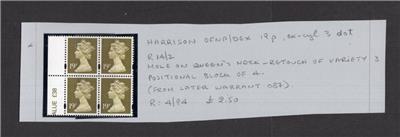 HARRISON OFNP/DEX 19p, ex-cyl 3 dot
R14/2
MOLE ON QUEEN'S NECK - RETOUCH OF VARIETY 3
POSITIONAL BLOCK OF 4.
(FROM LATER WARRANT 037).
R: 4/94 £2.50
19P 19P
19P 19P
ALUE £38